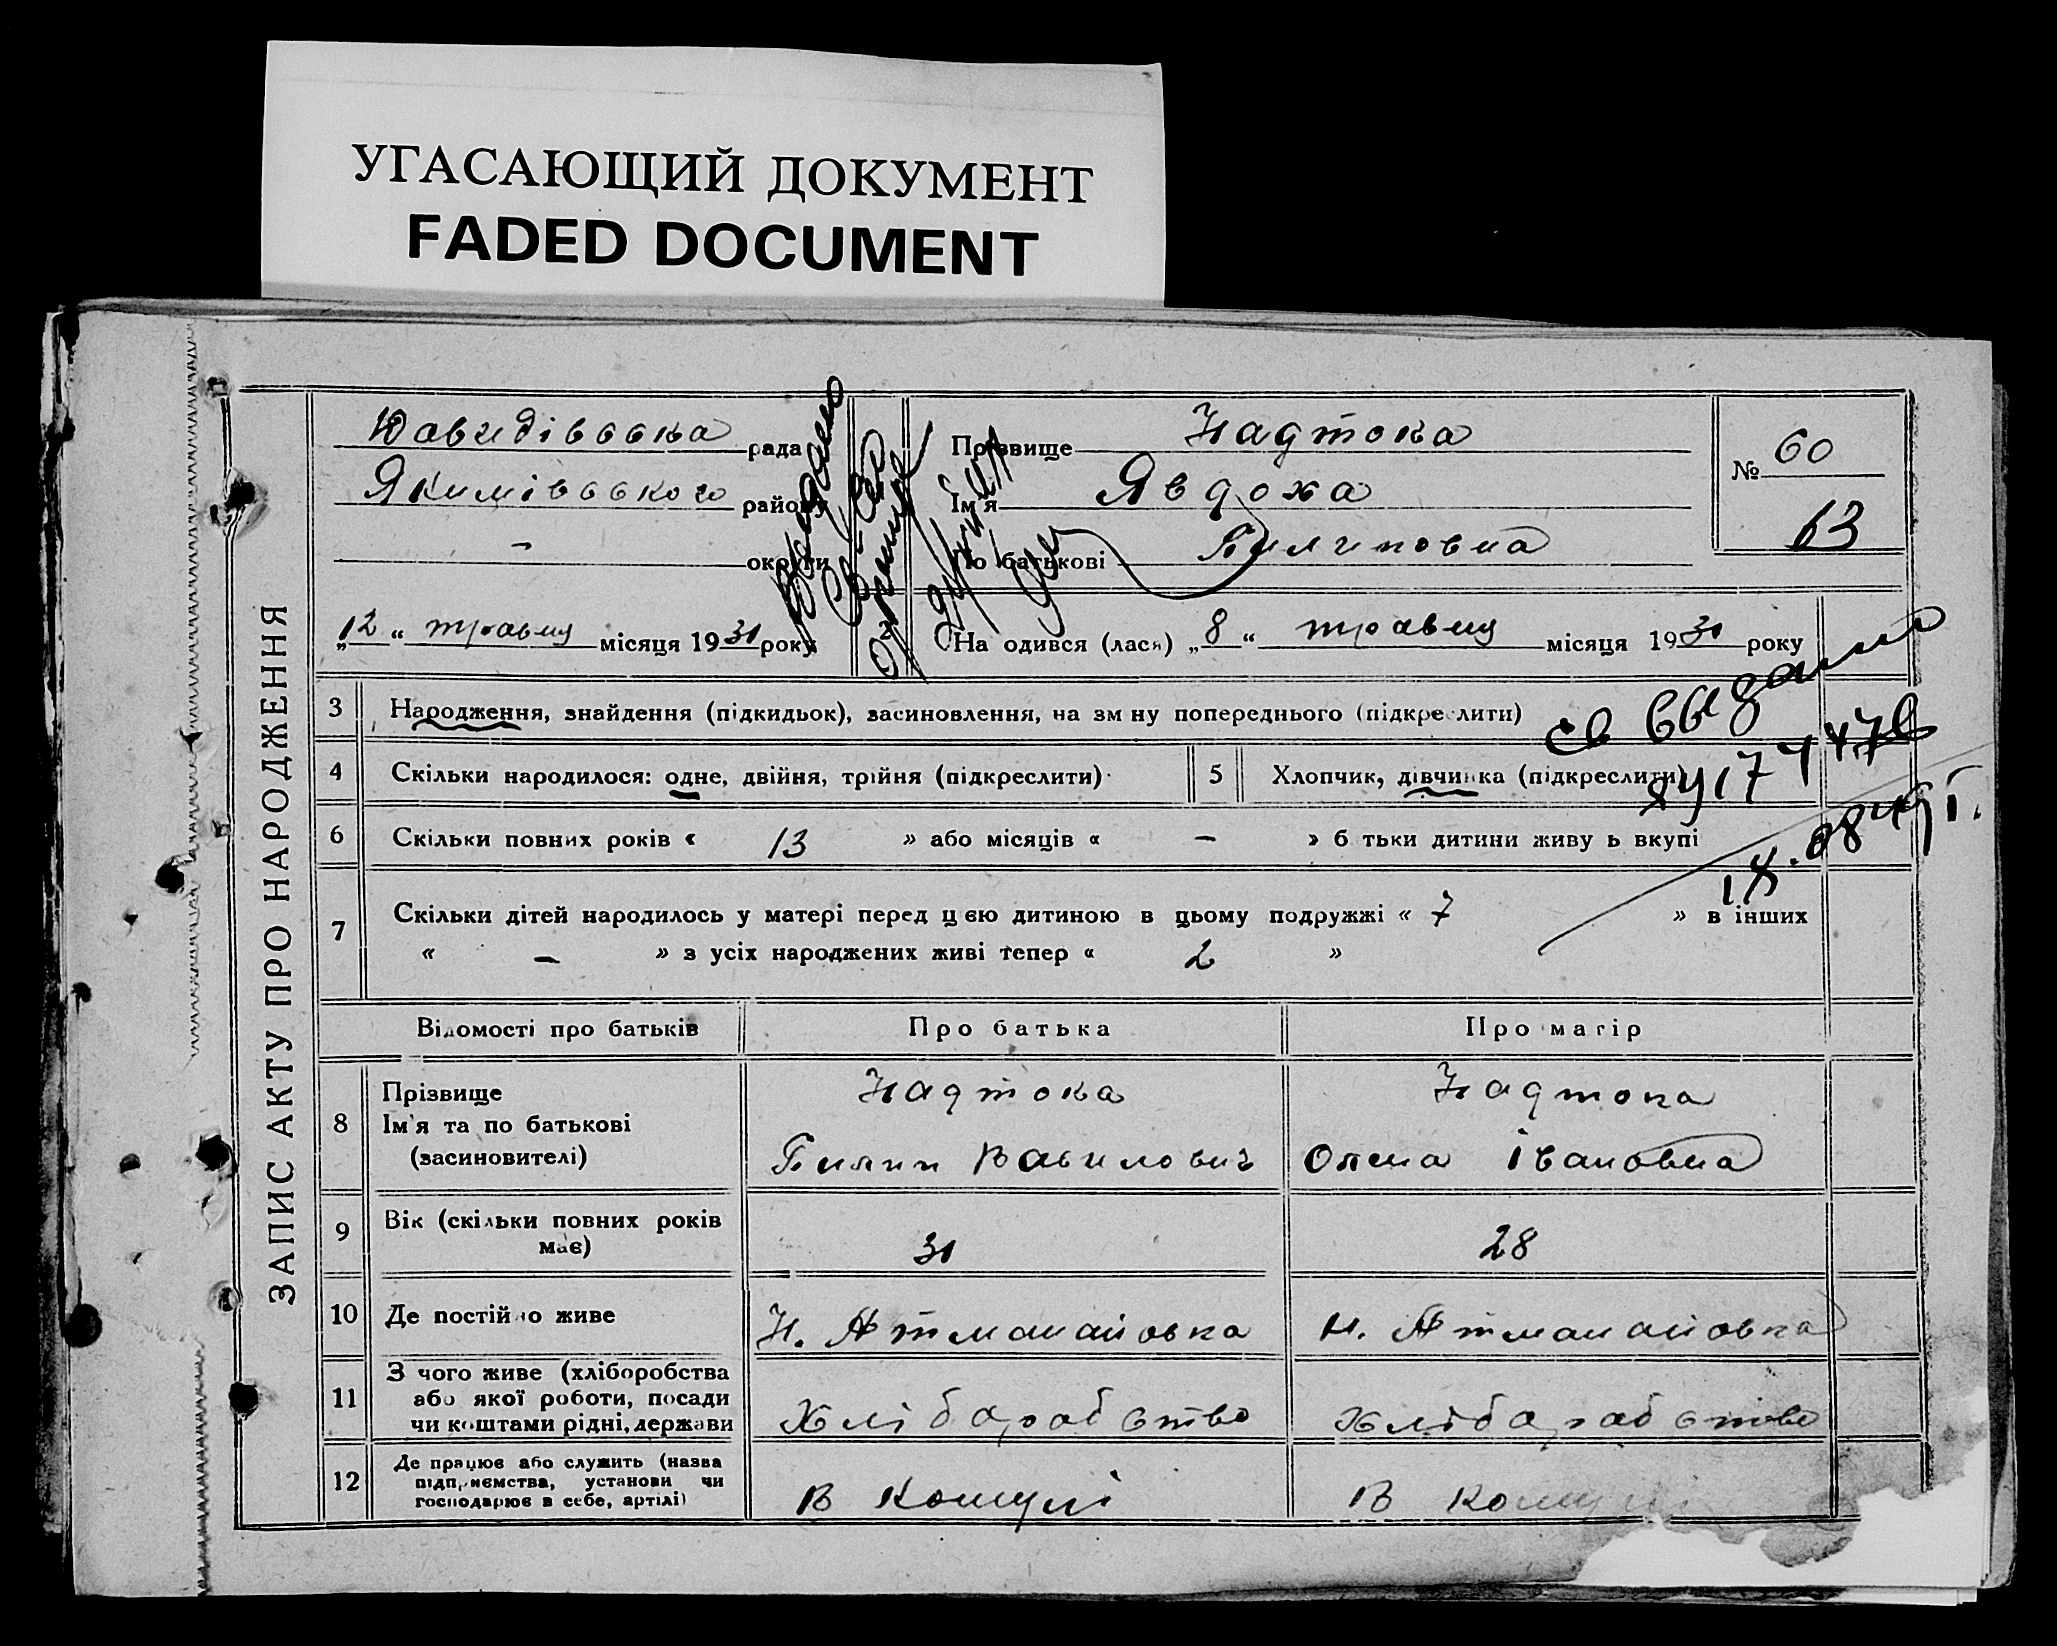 УГАСАЮЩИЙ ДОКУМЕНТ
FADED DOCUMENT
ЗАПИС АКТУ ПРО НАРОДЖЕННЯ
Давидівська рада
Якимівського району
— округи
„12“ травня місяця 1931 року
Прізвище Надтока
Ім'я Явдоха
По батькові Пилиповна
№ 60
13
На одився (лася) „8“ травня місяця 1931 року
3 Народження, знайдення (підкидьок), засиновлення, на зм ну попереднього (підкреслити)
св выдано
4 Скільки народилося: одне, двійня, трійня (підкреслити)
5 Хлопчик, дівчинка (підкреслити)
6 Скільки повних років « 13 » або місяців « — » б тьки дитини живу ь вкупі
7 Скільки дітей народилось у матері перед цією дитиною в цьому подружжі « 7 » в інших
« — » з усіх народжених живі тепер « 2 »
Відомості про батьків Про батька Про матір
8 Прізвище
Ім'я та по батькові
(засиновителі)
Надтока
Пилип Вавилович
Надтока
Олена Івановна
9 Вік (скільки повних років
має)
31 28
10 Де постійно живе Н. Атманайовка Н. Атманайовка
11 З чого живе (хліборобства
або якої роботи, посади
чи коштами рідні, держави
Хлібарабство Хлібарабство
12 Де працює або служить (назва
підприємства, установи чи
господарює в себе, артілі)
В комуні В комуні